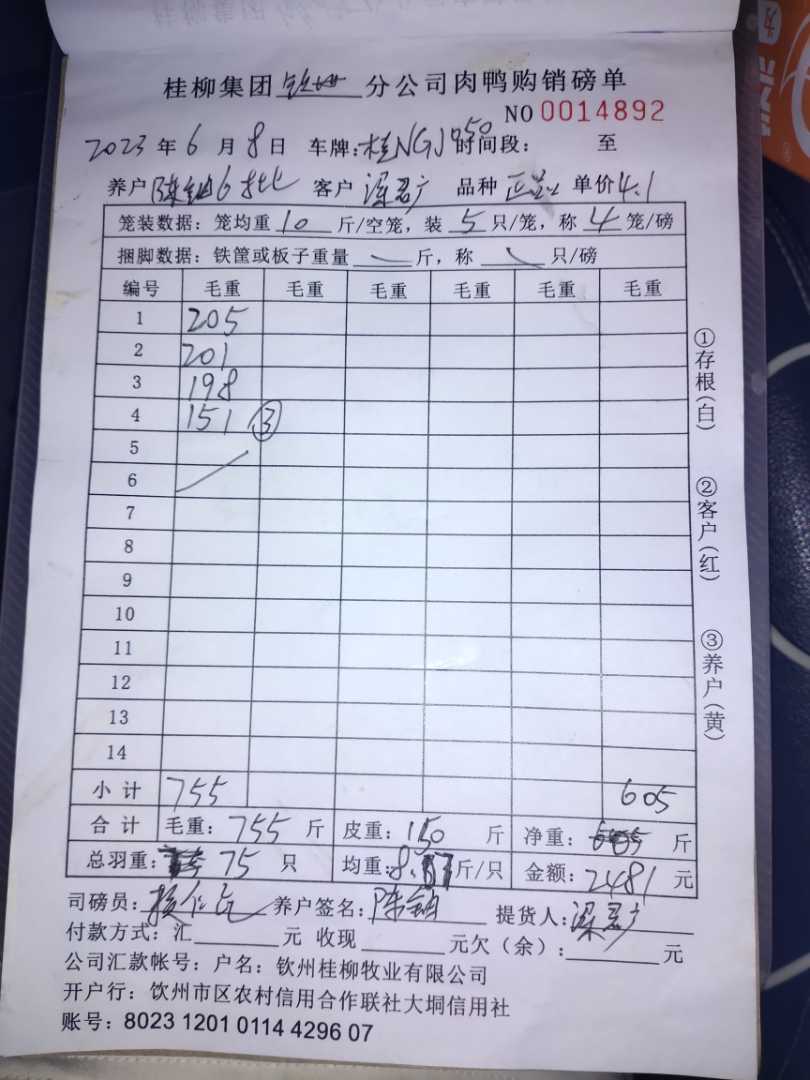 桂柳集团 钦州 分公司肉鸭购销磅单
NO 0014892
2023 年 6 月 8 日 车牌:桂NGJ050 时间段: 至
养户 陈 6批 客户 梁君广 品种 正品 单价 4.1
笼装数据:笼均重 10 斤/空笼,装 5 只/笼,称 4 笼/磅
捆脚数据:铁筐或板子重量 斤,称 只/磅
编号 毛重 毛重 毛重 毛重 毛重 毛重
1 205
2 201
3 198
4 151 ③
5
6
7
8
9
10
11
12
13
14
小 计 755 605
合 计 毛重: 755 斤 皮重: 150 斤 净重: 605 斤
总羽重: 75 只 均重: 8. 斤/只 金额: 2481 元
司磅员: 养户签名: 陈 提货人: 梁君广
付款方式:汇 元 收现 元欠(余): 元
公司汇款帐号:户名:钦州桂柳牧业有限公司
开户行:钦州市区农村信用合作联社大垌信用社
账号:8023 1201 0114 4296 07
①存根(白)
②客户(红)
③养户(黄)